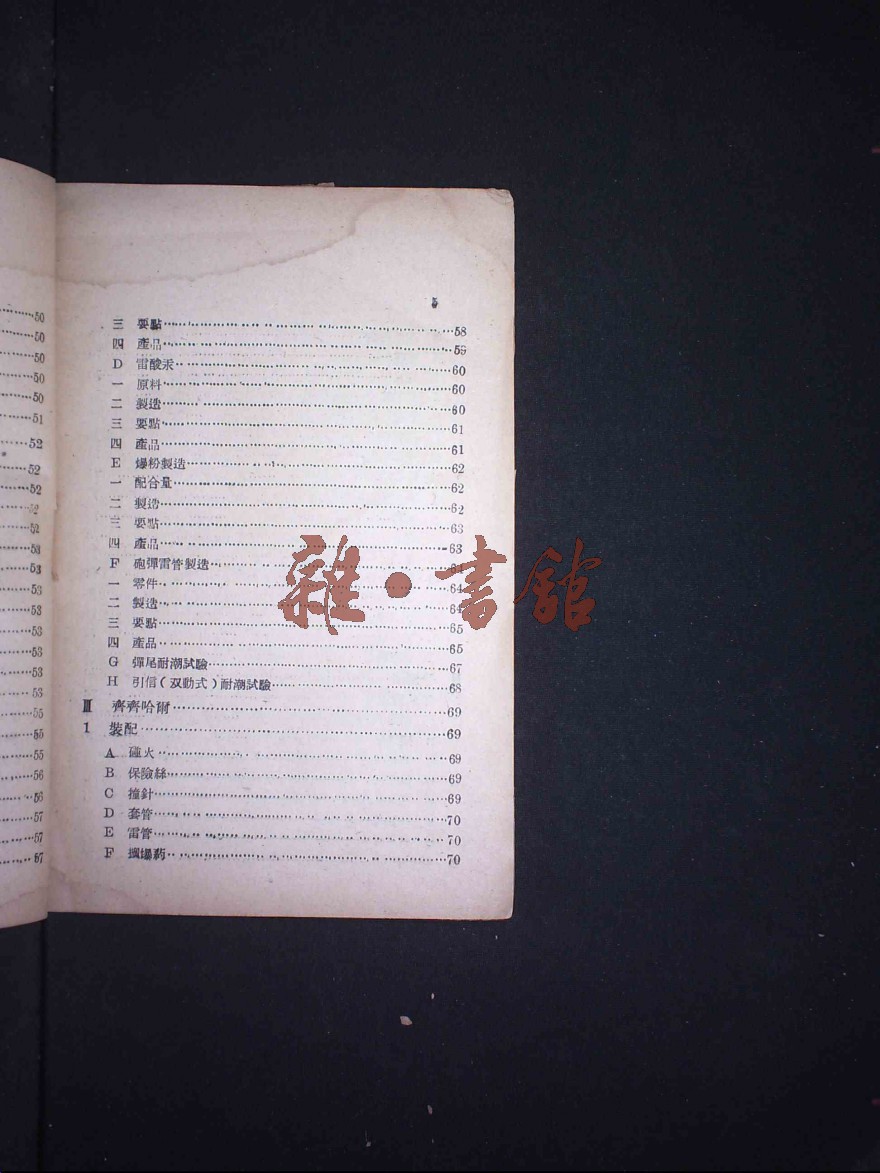 50
50
50
50
50
51
52
52
52
52
52
53
53
53
53
53
53
53
55
55
55
56
56
57
57
67
5
三 要點 58
四 產品 59
D 雷酸汞 60
一 原料 60
二 製造 60
三 要點 61
四 產品 61
E 爆粉製造 62
一 配合量 62
二 製造 62
三 要點 63
四 產品 63
F 砲彈雷管製造 64
一 零件 64
二 製造 64
三 要點 65
四 產品 65
G 彈尾耐潮試驗 67
H 引信(双動式)耐潮試驗 68
Ⅲ 齊齊哈爾 69
1 裝配 69
A 碰火 69
B 保險絲 69
C 撞針 69
D 套管 70
E 雷管 70
F 爆葯 70
雜·書館